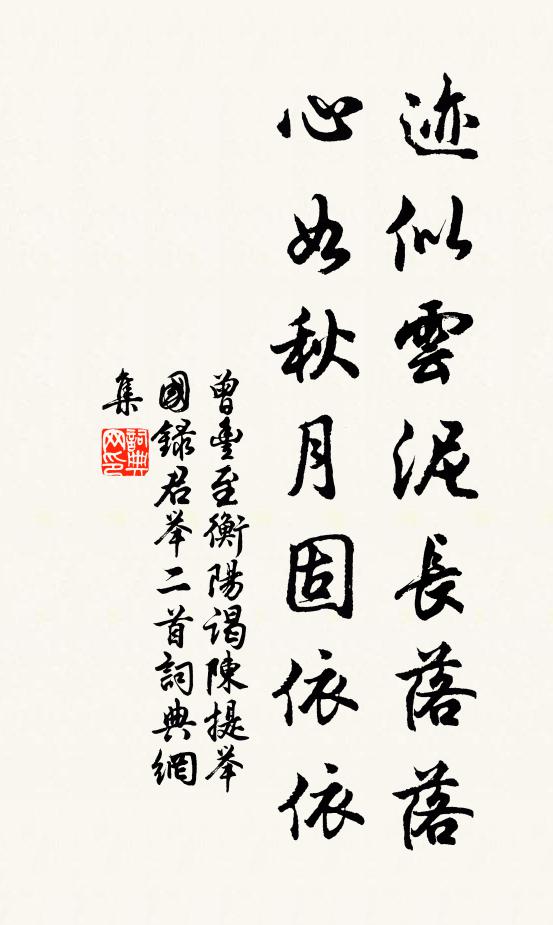 迹似雲泥長落落
心如秋月固依依
曾豐至衡陽謁陳提举
國録君举二首詞典網
集
詞典网印